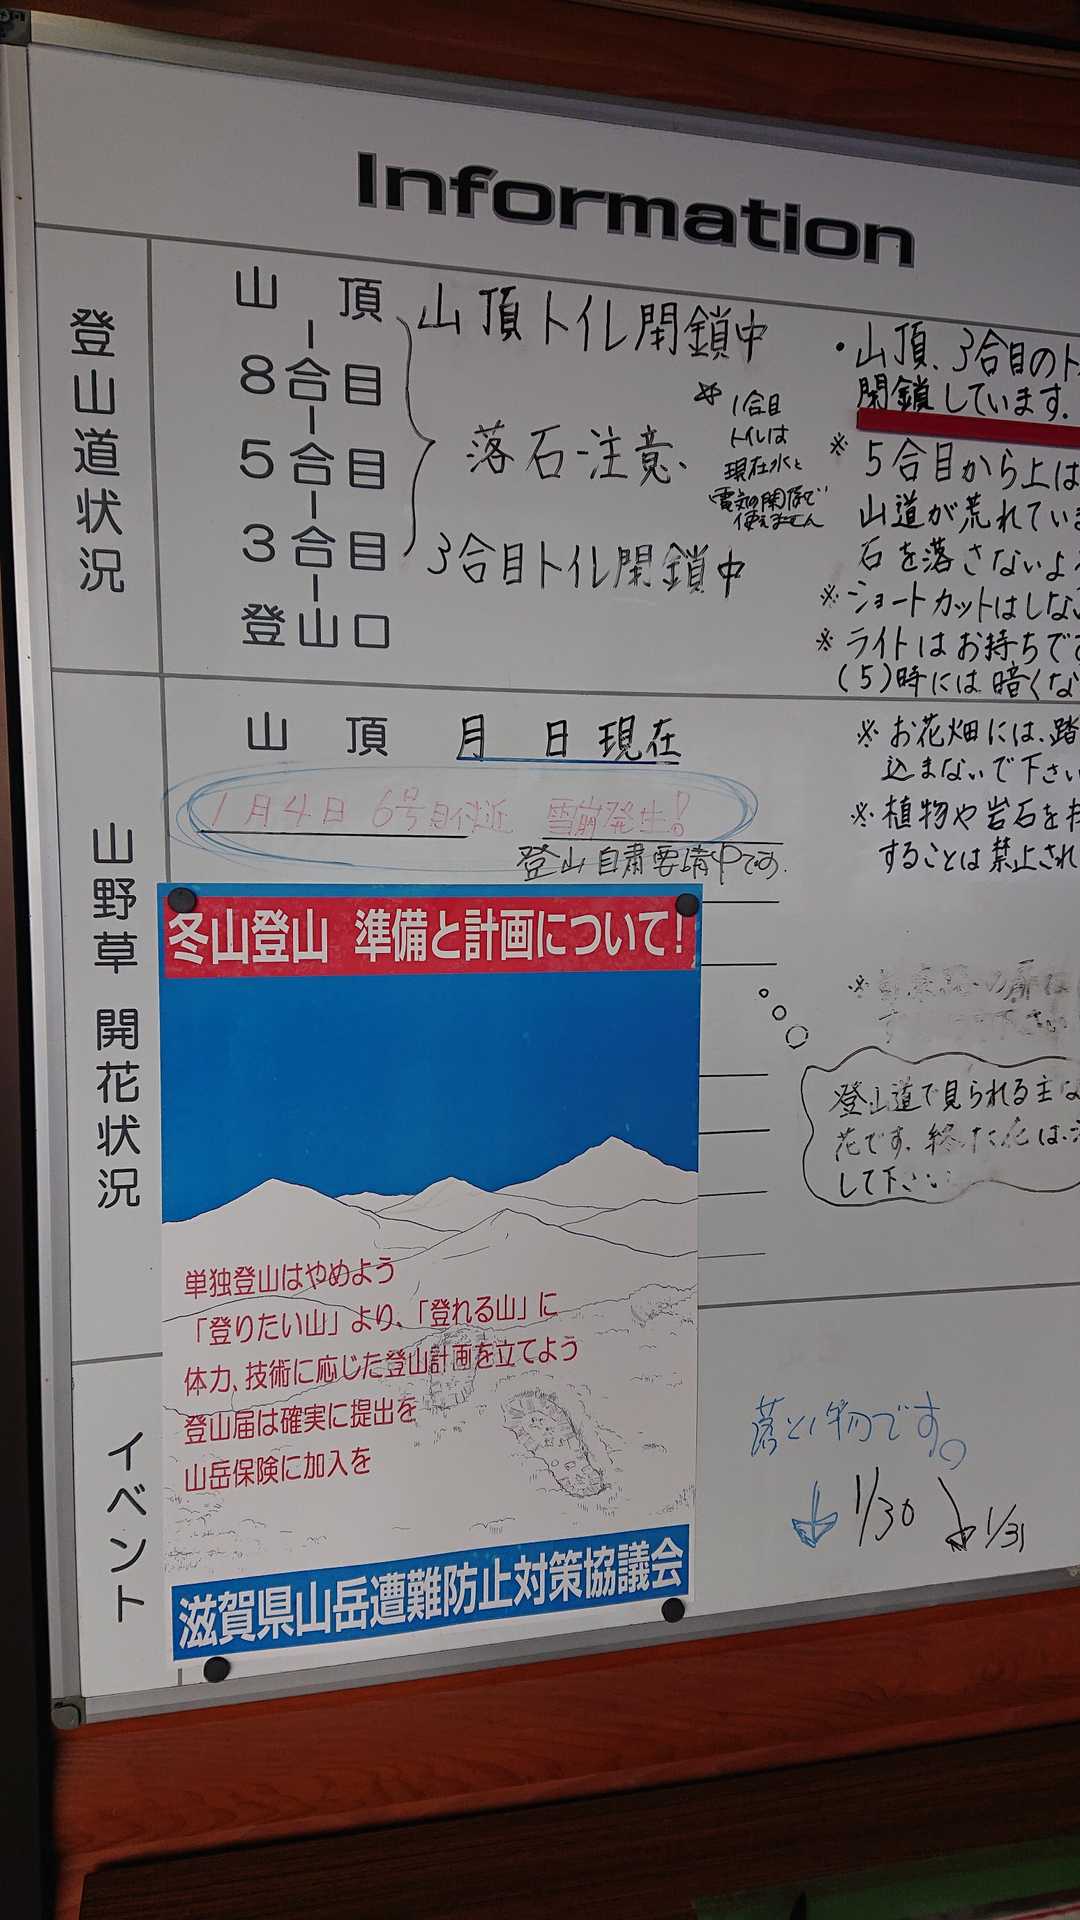 Information
登山道状況
山頂
8合目
5合目
3合目
登山口
山頂トイレ閉鎖中
落石注意、
3合目トイレ閉鎖中
1合目
トイレは
現在水と
電気の関係で
使えません
・山頂、3合目のト
閉鎖しています。
※5合目から上は
山道が荒れていま
石を落さないよ
※ショートカットはしな
※ライトはお持ちで
(5)時には暗くな
山野草 開花状況
山頂 月 日 現在
1月4日 6号目付近 雪崩発生!
登山自粛要請中です。
※お花畑には、踏
込まないで下さい
※植物や岩石を
することは禁止され
登山道で見られる主な
花です。終った花は、
して下さい
冬山登山 準備と計画について!
単独登山はやめよう
「登りたい山」より、「登れる山」に
体力、技術に応じた登山計画を立てよう
登山届は確実に提出を
山岳保険に加入を
滋賀県山岳遭難防止対策協議会
イベント
落とし物です。
1/30
1/31